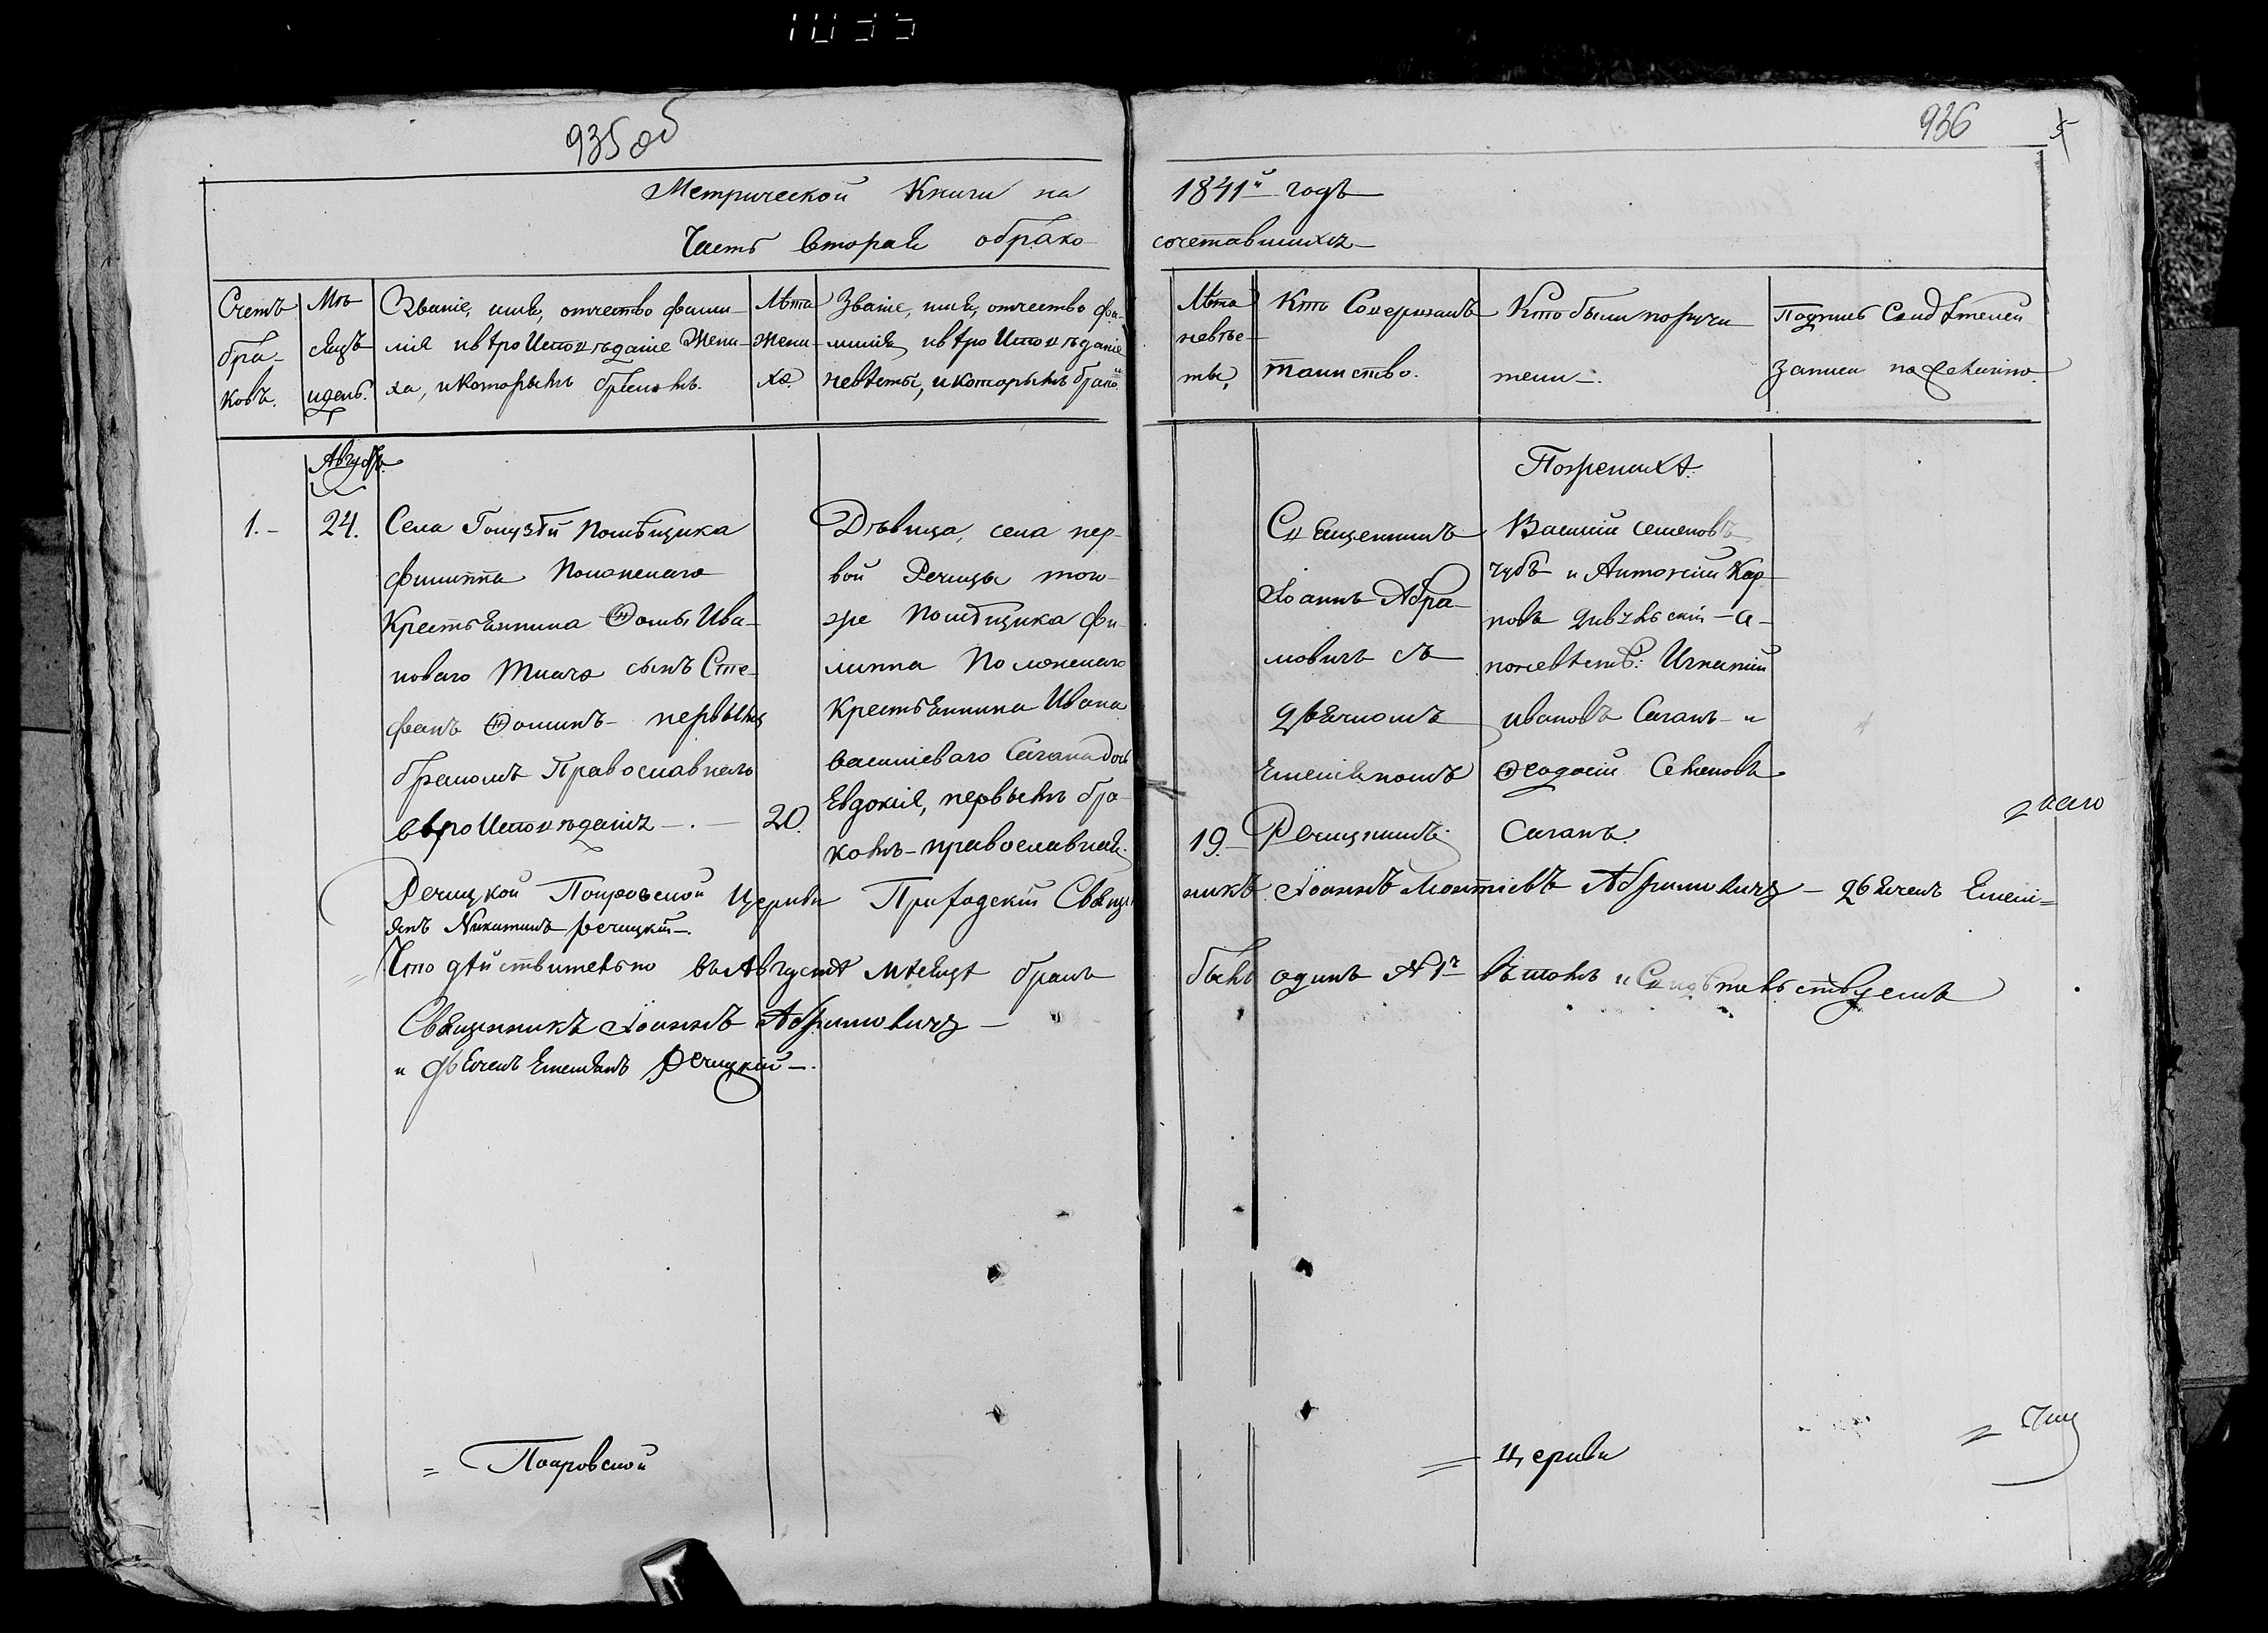 935 об
936
Метрической Книги на 1841й годъ
Часть вторая обрако сочетавшихся
Счетъ браковъ.
Мѣсяцъ идень.
Званіе, имя, отчество фамилія ивѣроИсповѣданіе Жениха, икоторымъ бракомъ.
Лѣта жениха.
Званіе, имя, отчество фамилія, ивѣроИсповѣданіе невѣсты, икоторымъ бракомъ
Лѣта невѣсты,
Кто Совершалъ Таинство.
Кто были поручители.
Подпись Свидѣтелей записи по желанію.
Августъ
1.
24.
Села Голузіи Помѣщика
филиппа
Крестьянина Ѳомы Ива-
новаго сынъ Сте-
фанъ Ѳоминъ первымъ
бракомъ Православнаго
вѣроИсповѣданія
20.
Дѣвица, села пер-
вой Речицы того-
же Помѣщика фи-
липпа
Крестьянина Ивана
василіеваго Сагана дочь
Евдокія, первымъ бра-
комъ православная.
19.
Священникъ
Іоаннъ Абра-
мовичъ съ
дьячкомъ
Емеліяномъ
Речицкимъ
Поженихѣ.
Василій семеновъ
чубъ и Антоній Кар-
повъ а
поневѣстѣ: Игнатій
ивановъ Саганъ и
Ѳеодосій Семеновъ
Саганъ.
Речицкой Покровской Церкви Приходскій Священникъ Іоаннъ Абрамовичъ дьячекъ Емелі=
янъ Никитинъ Речицкій
Что дѣйствительно въ Августѣ мѣсяцѣ бракъ былъ одинъ №1й втомъ и Свидѣтельствуемъ
Священникъ Іоаннъ Абрамовичъ
и дьячекъ Емеліянъ Речицкій
= Покровской = Церкви =